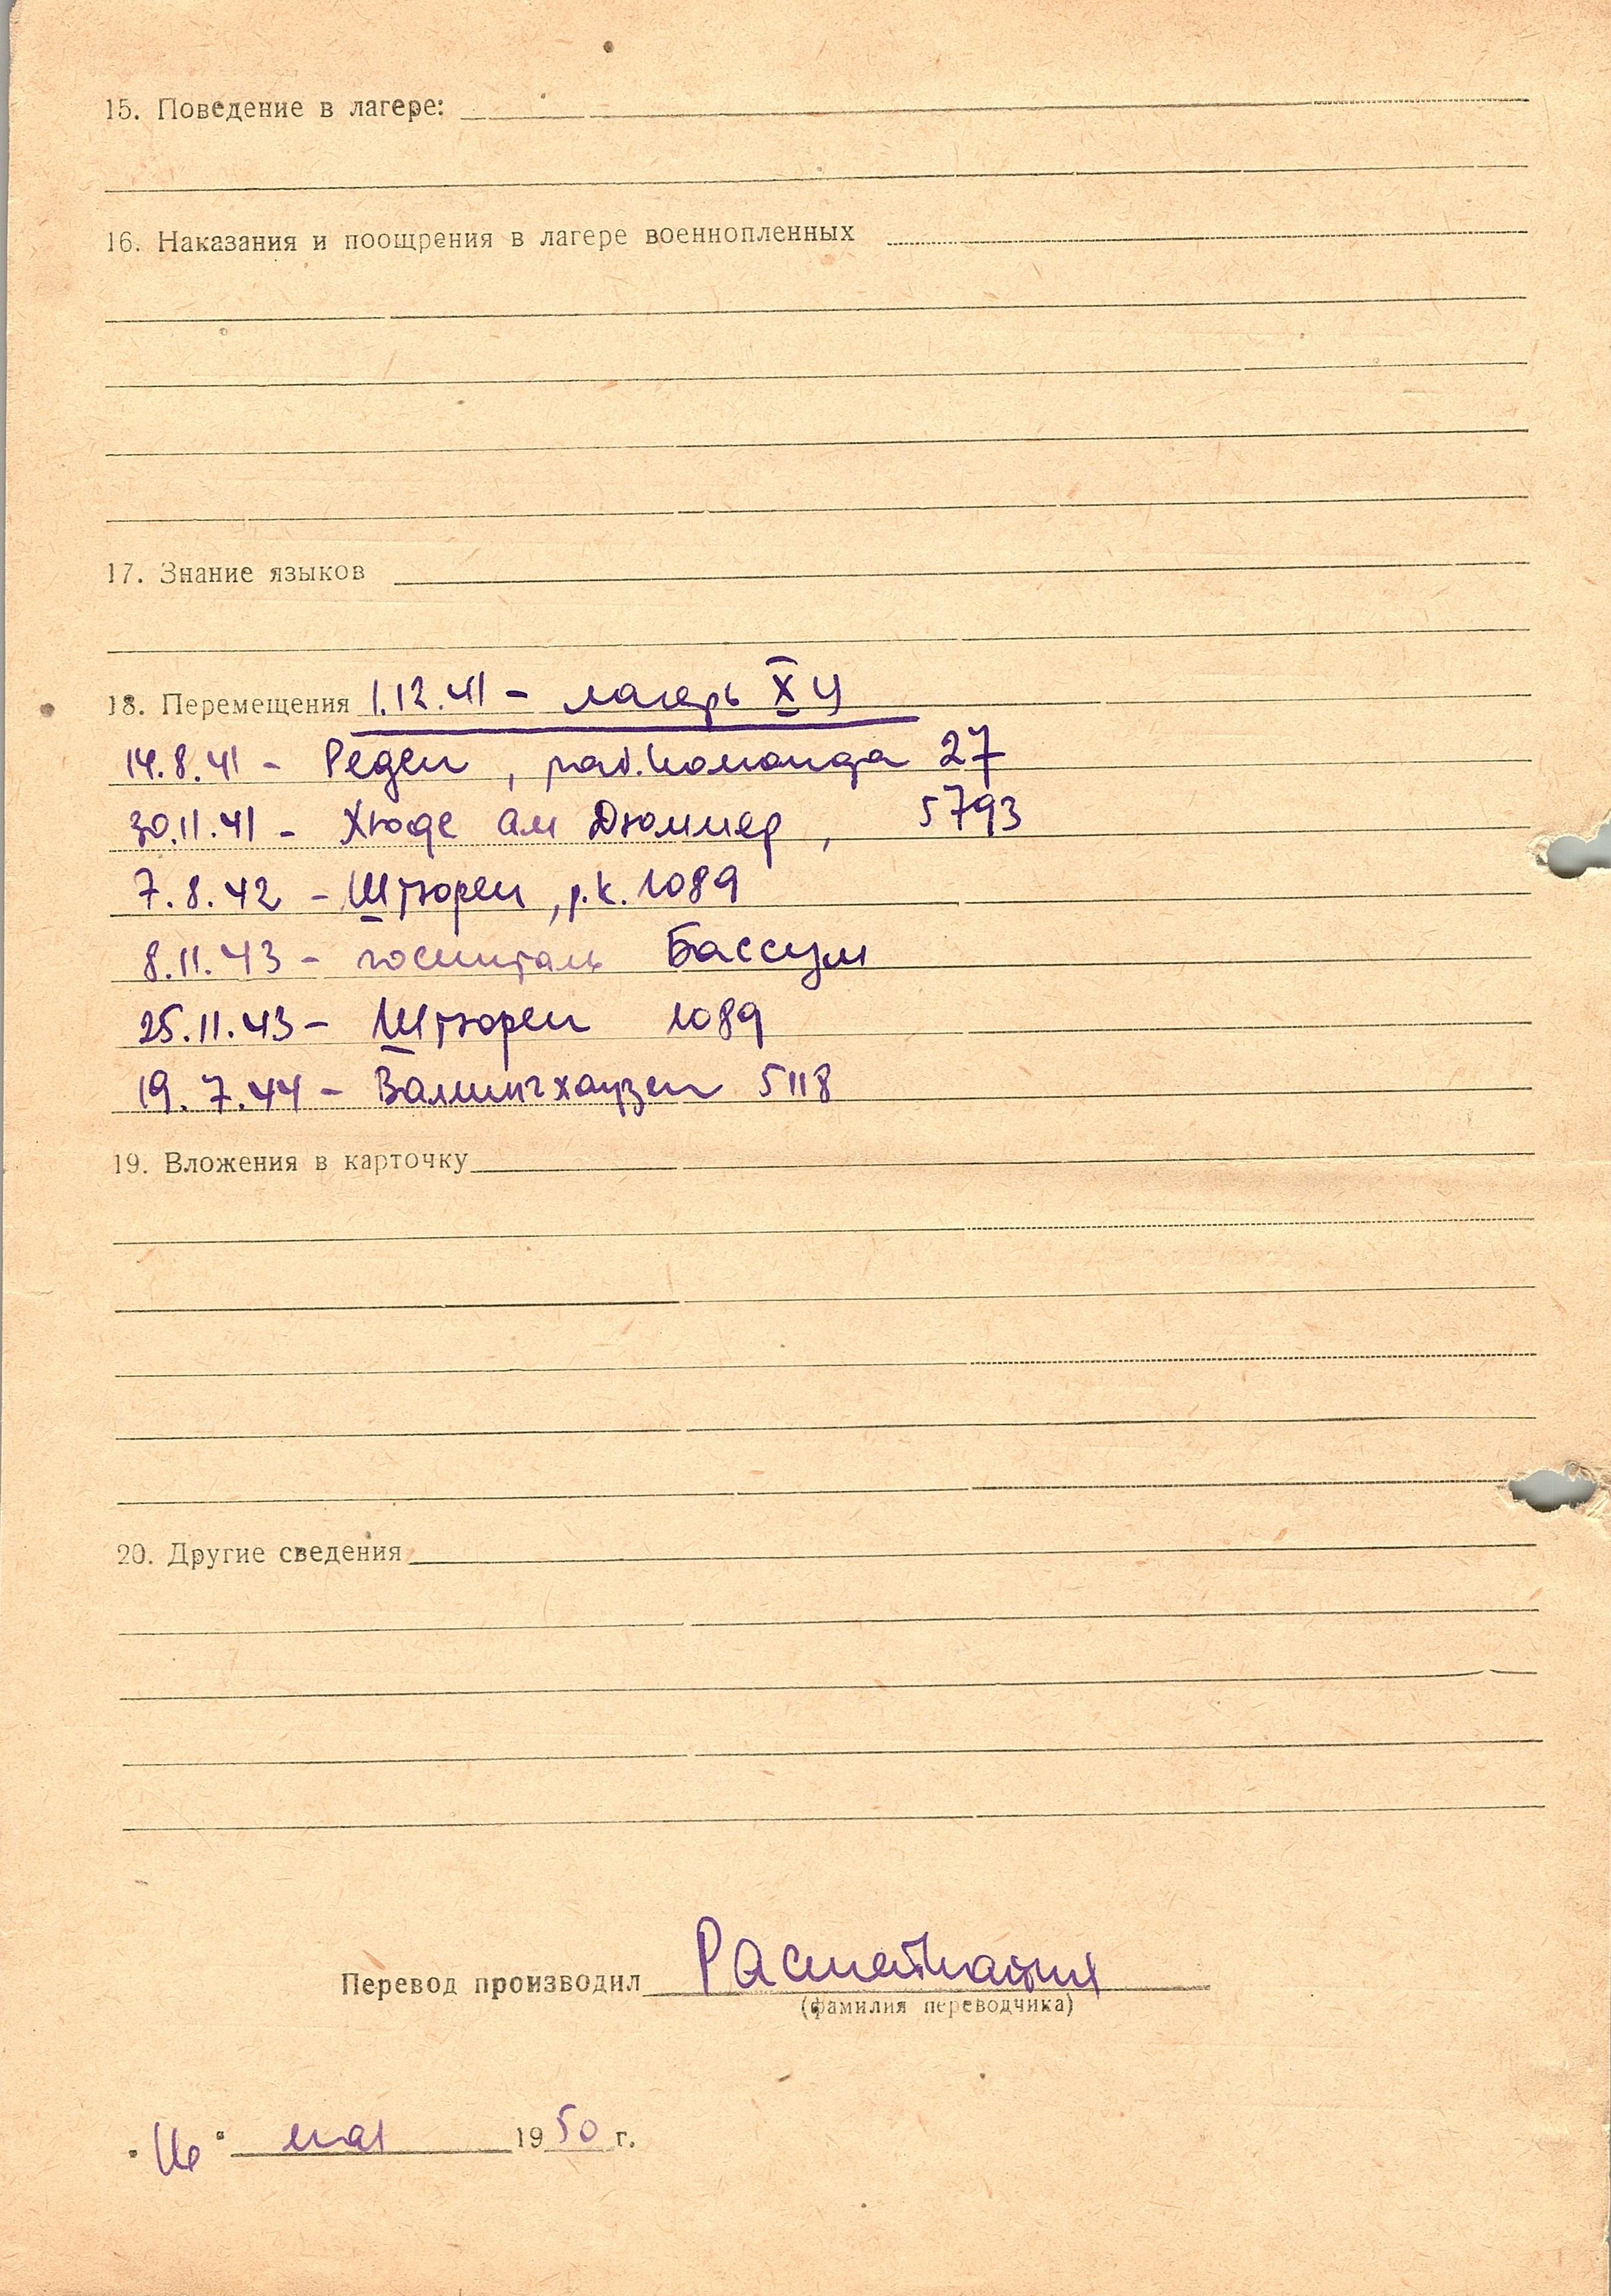 15. Поведение в лагере:
16. Наказания и поощрения в лагере военнопленных
17. Знание языков
18. Перемещения 1.12.41 - лагерь X
14.8.41 - Реден, раб.команда 27
30.11.41 - Хюде ам Дюммер, 5793
7.8.42 - Штюрен, р.к. 1089
8.11.43 - госпиталь Бассум
25.11.43 - Штюрен 1089
19.7.44 - Валингхаузен 5118
19. Вложения в карточку
20. Другие сведения
Перевод производил
(фамилия переводчика)
"16" мая 1950 г.